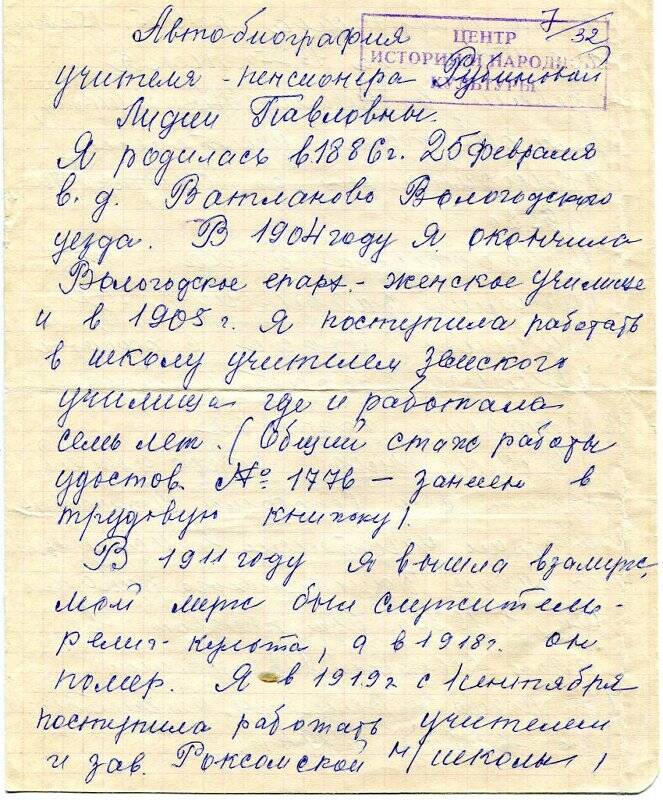 7/32
ЦЕНТР
ИСТОРИИ И НАРОДНОЙ
КУЛЬТУРЫ
Автобиография
учителя - пенсионера Рубиновой
Лидии Павловны.
Я родилась в 1886 г. 25 февраля
в. д. Ватланово Вологодского
уезда. В 1904 году я окончила
Вологодское епарх. - женское училище
и в 1905 г. я поступила работать
в школу учителем земского
училища где и работала
семь лет. (Общий стаж работы
удостов. № 1776 - занесен в
трудовую книжку).
В 1911 году я вышла взамуж,
мой муж был служитель
религ- культа, а в 1918 г. он
помер. Я в 1919 г с 1 сентября
поступила работать учителем
и зав. Роксомской н/школы,